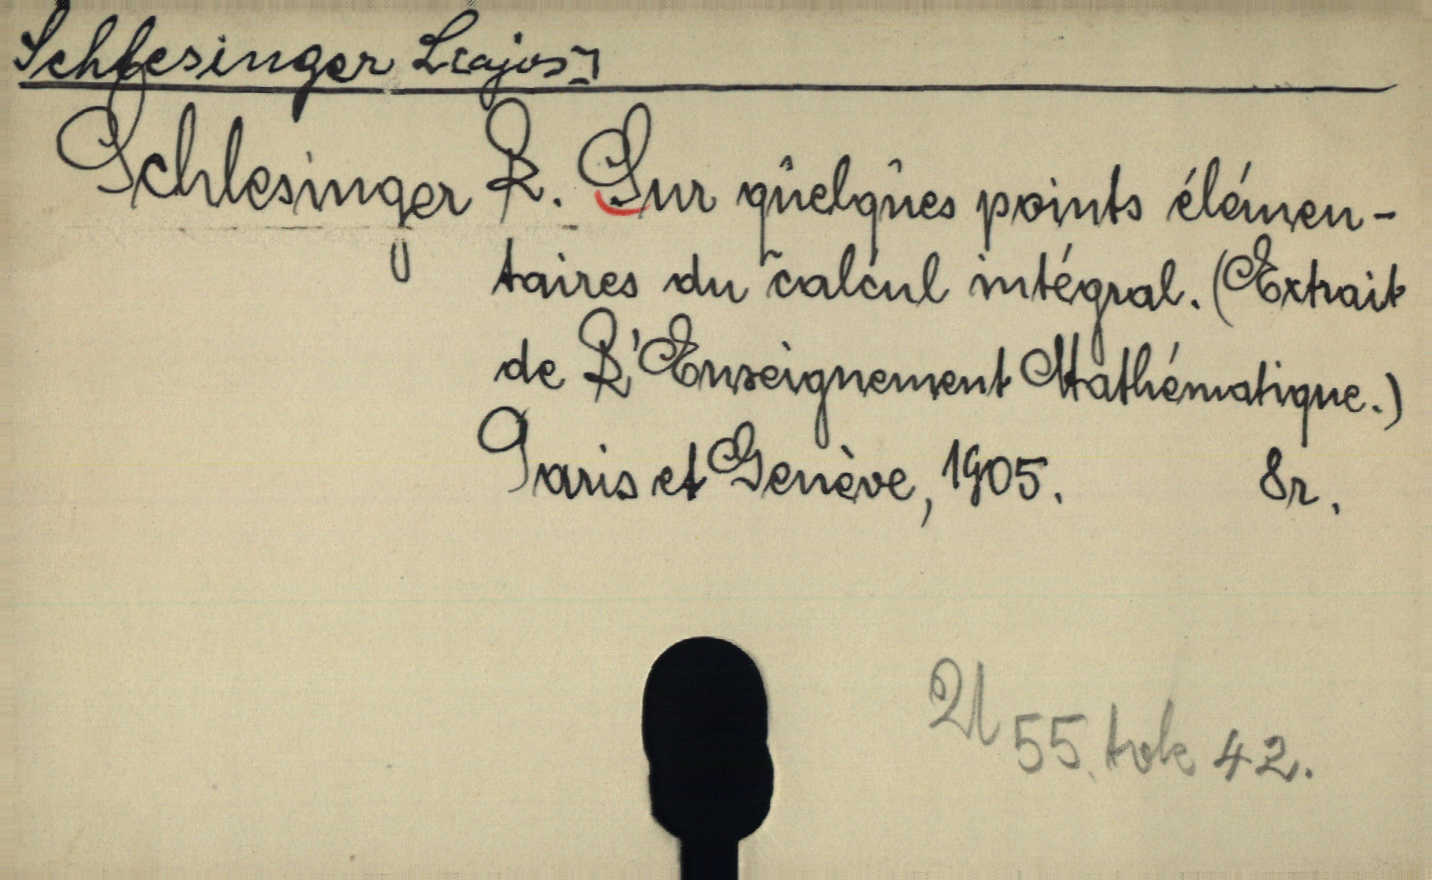 Schlesinger L[ajos]
Schlesinger L. Sur quelques points élémen-
taires du calcul intégral. (Extrait
de L'Enseignement Mathématique.)
Paris et Genève, 1905. 8r.
55. tok 42.